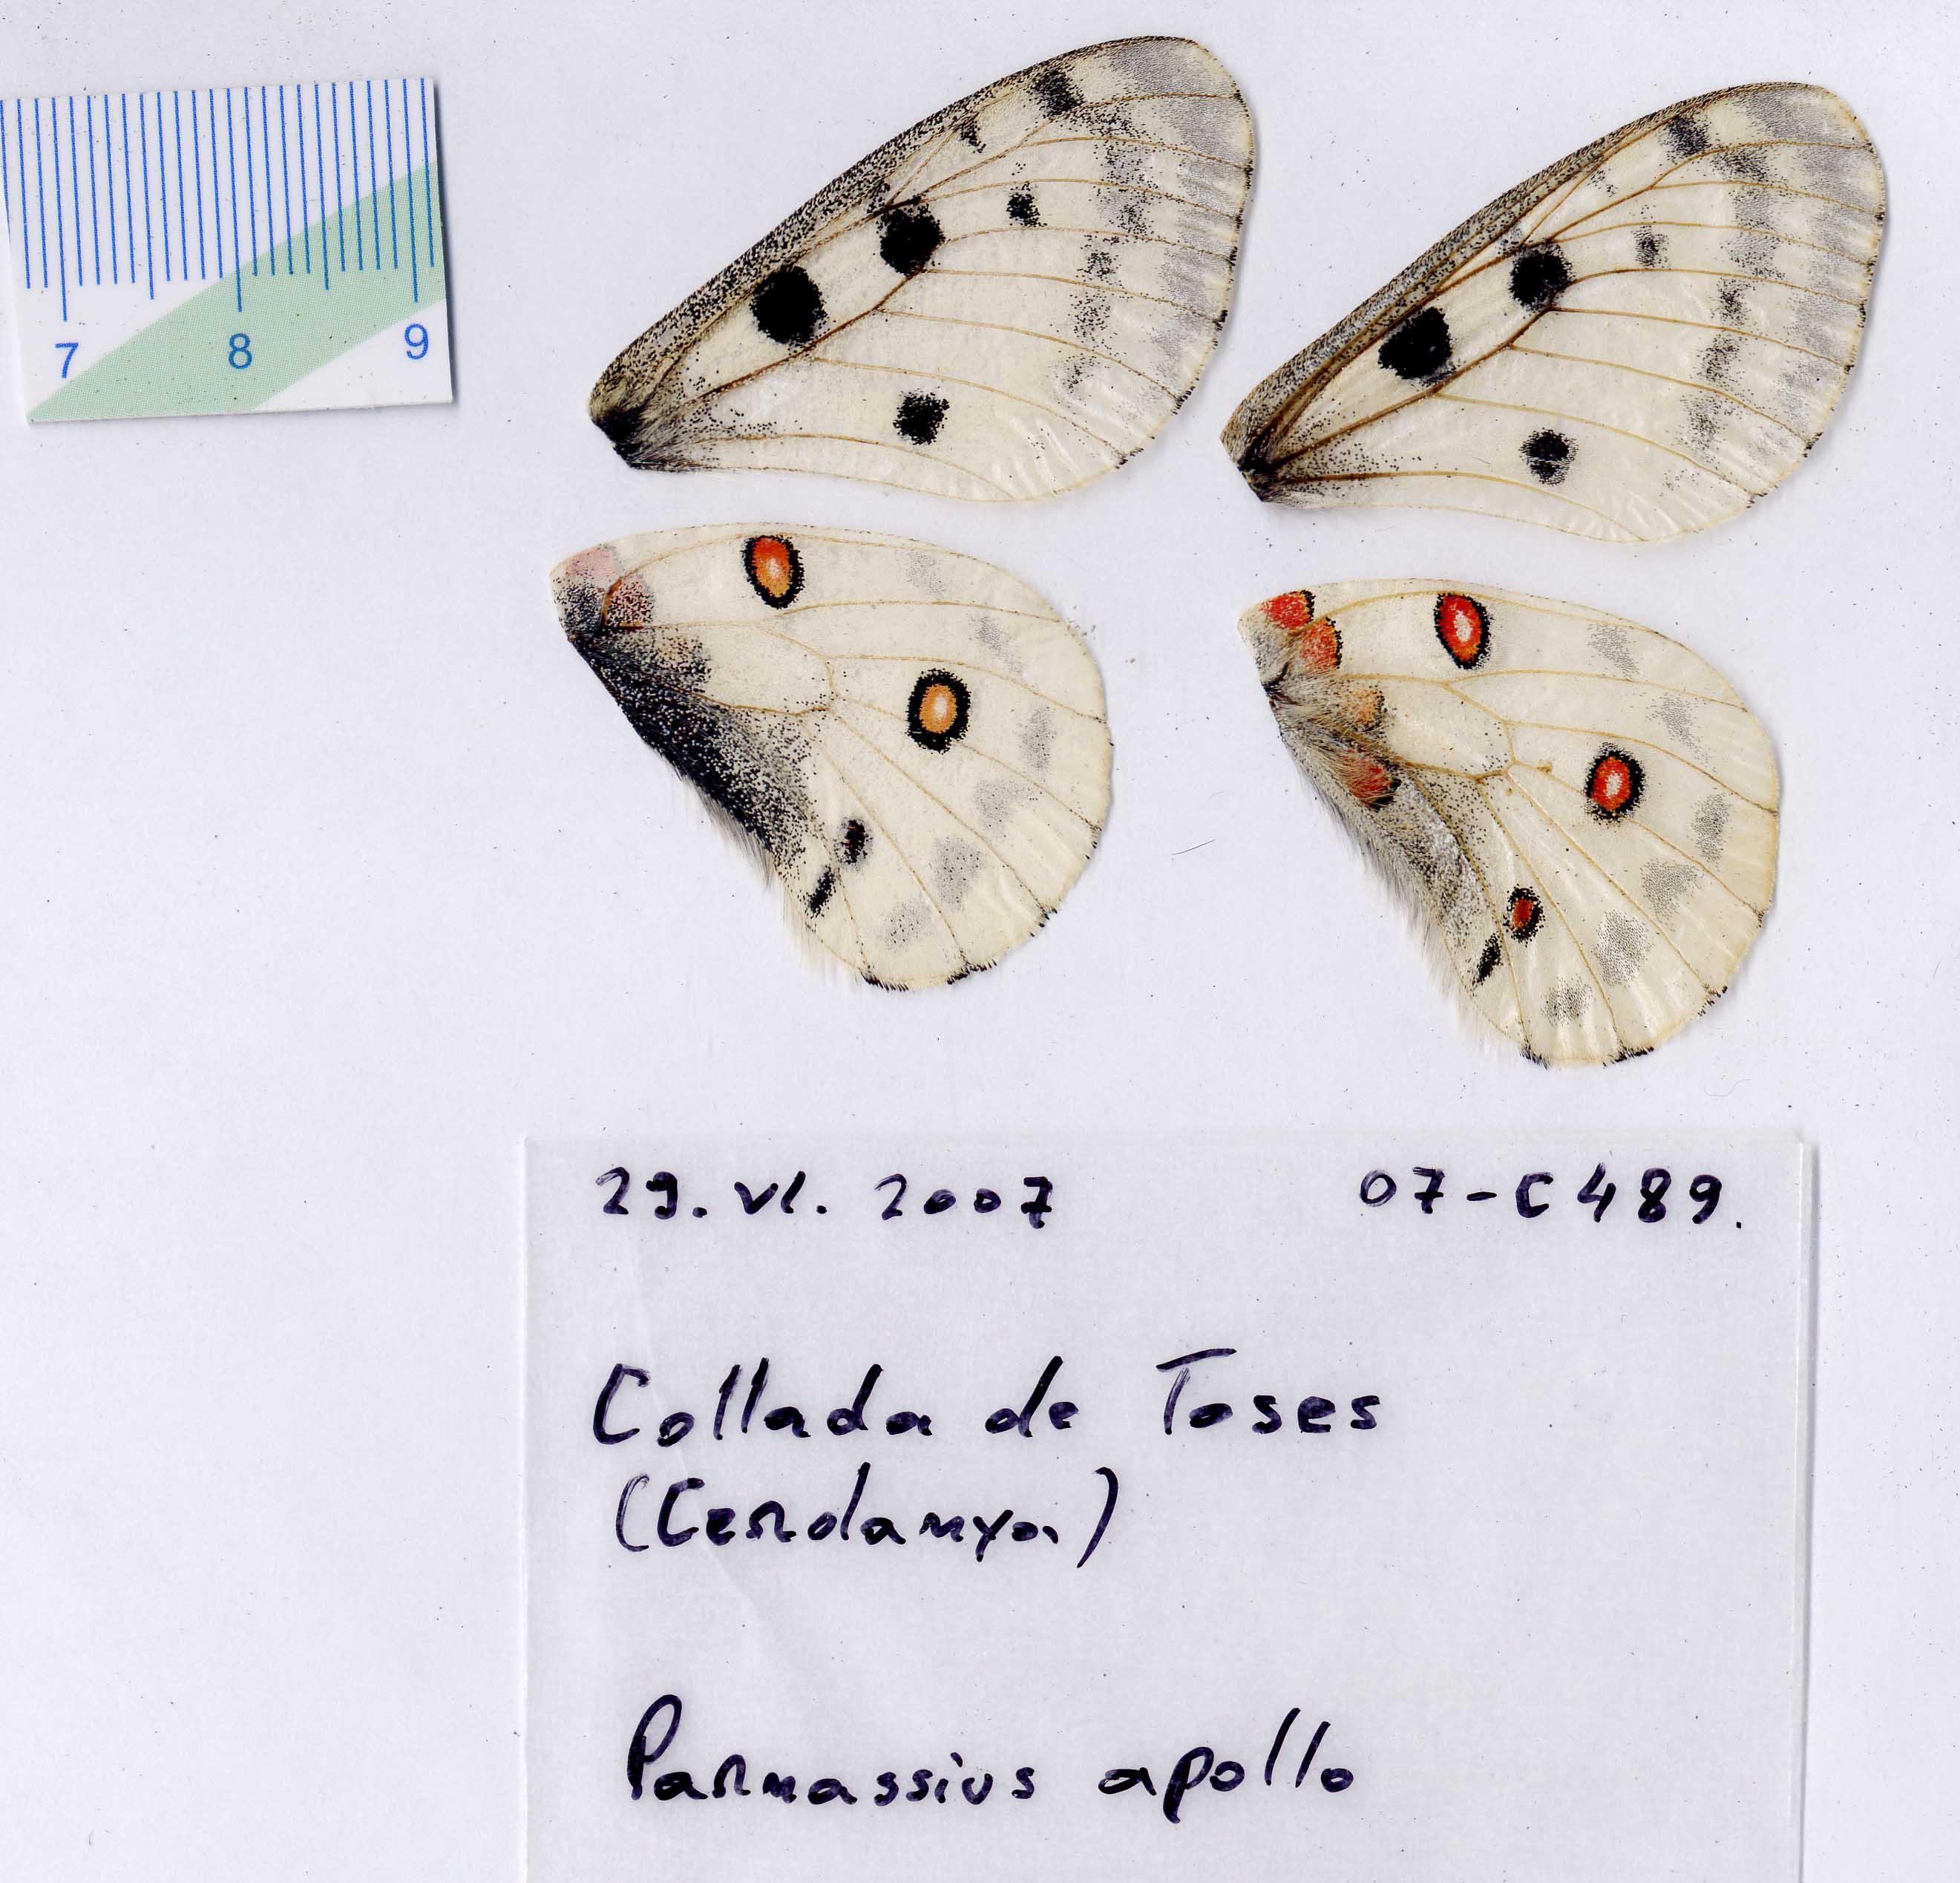 7 8 9
29. VI. 2007 07-C489.
Collada de Toses
(Cerdanya)
Parnassius apollo